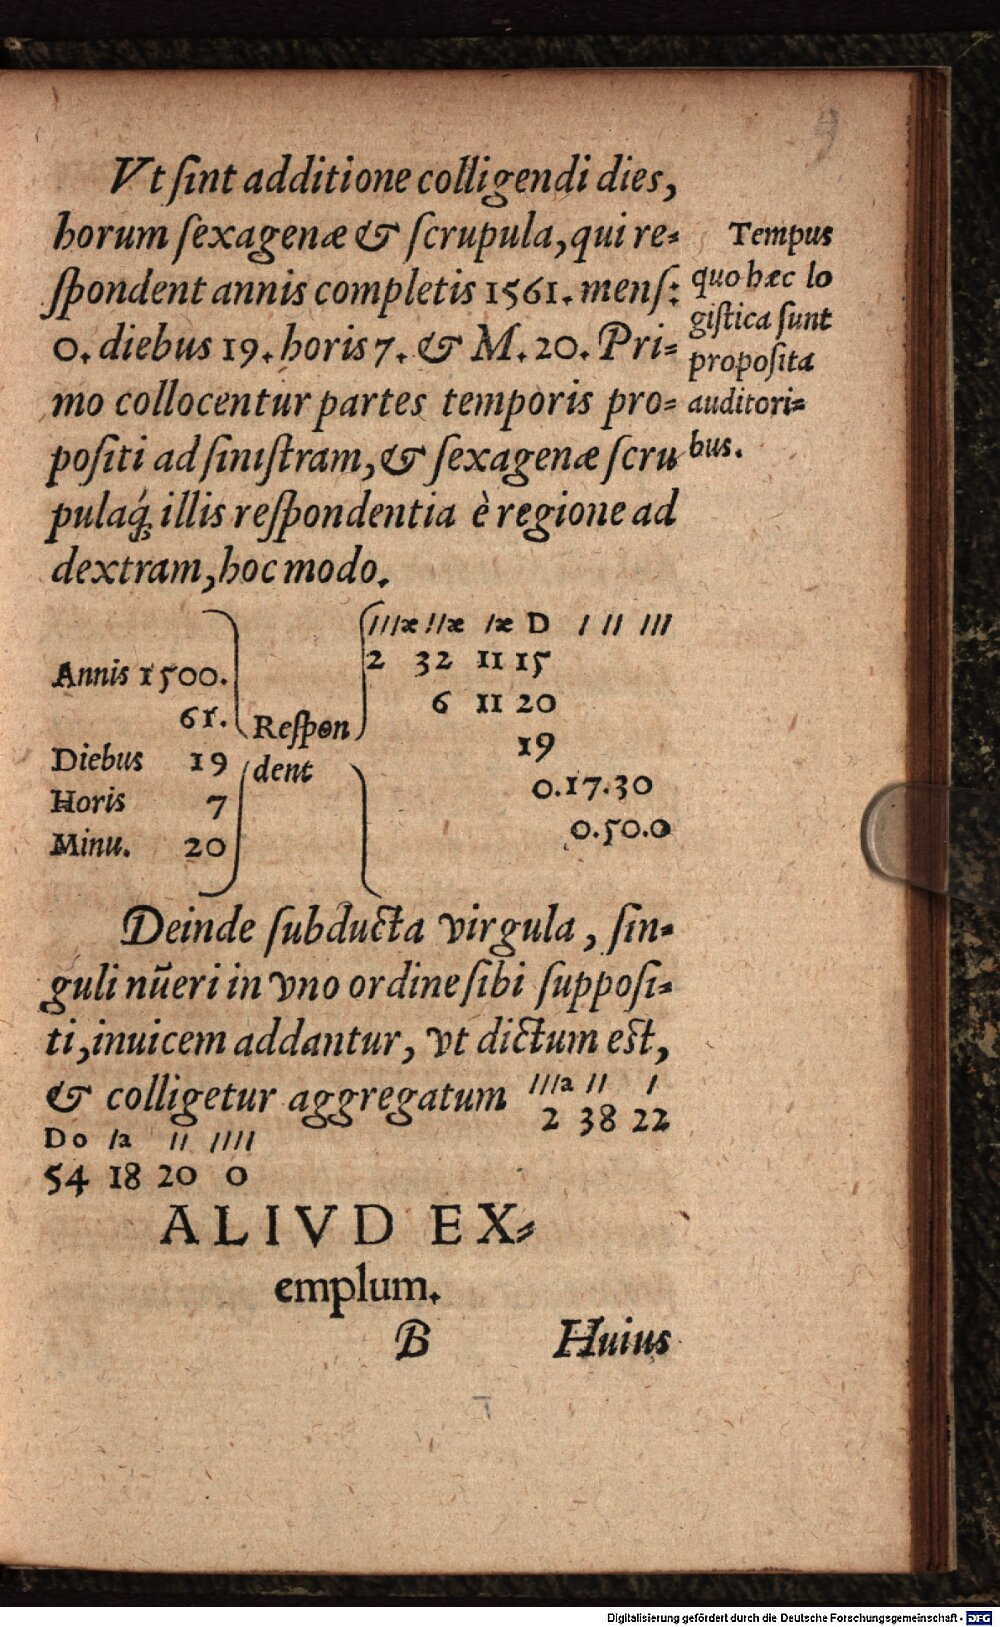 9
Vt sint additione colligendi dies,
horum sexagenæ & scrupula, qui re=
spondent annis completis 1561. mens:
0. diebus 19. horis 7. & M. 20. Pri=
mo collocentur partes temporis pro=
positi ad sinistram, & sexagenæ scru
pulaq́ꝫ illis respondentia è regione ad
dextram, hoc modo.
Tempus
quo hæc lo
gistica sunt
proposita
auditori=
bus.
///æ //æ /æ D / // ///
Annis 1500. 2 32 11 15
61. Respon 6 11 20
Diebus 19 dent 19
Horis 7 0.17.30
Minu. 20 0.50.0
Deinde subducta virgula, sin=
guli nūeri in vno ordine sibi supposi=
ti, inuicem addantur, vt dictum est,
& colligetur aggregatum ///a // /
2 38 22
Do /a // ////
54 18 20 0
ALIVD EX=
emplum.
B Huius
Digitalisierung gefördert durch die Deutsche Forschungsgemeinschaft - DFG